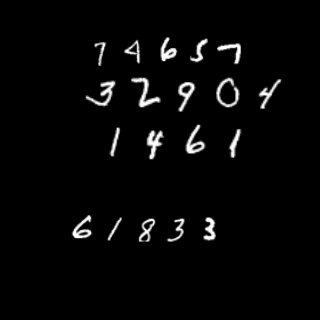 74657
32904
1461
61833